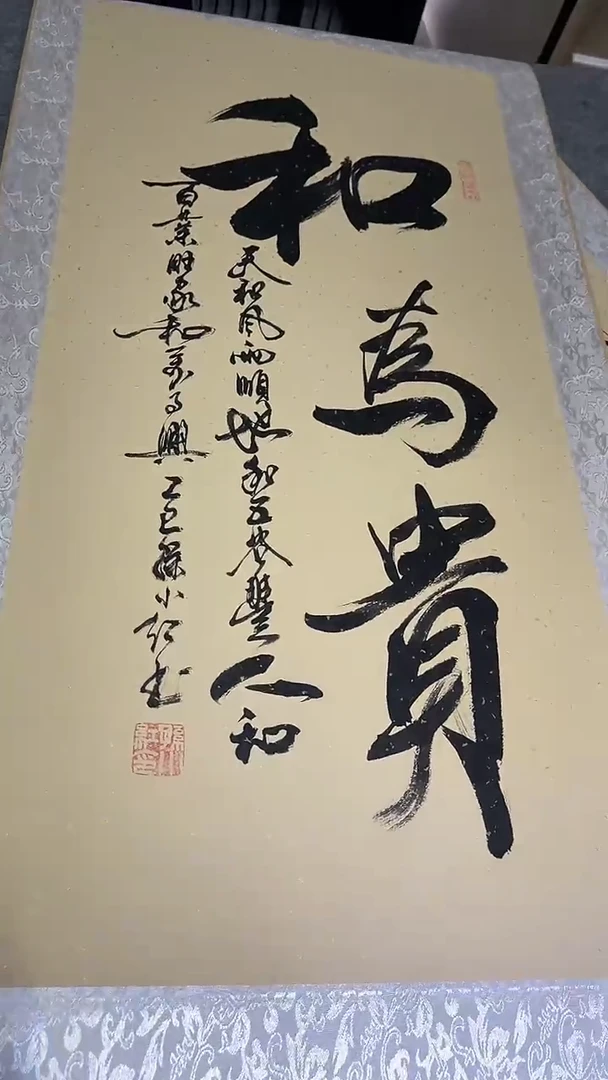 和為貴
天和風雨順地和五谷豐人和
百業旺家和萬事興 乙巳孫小紅书